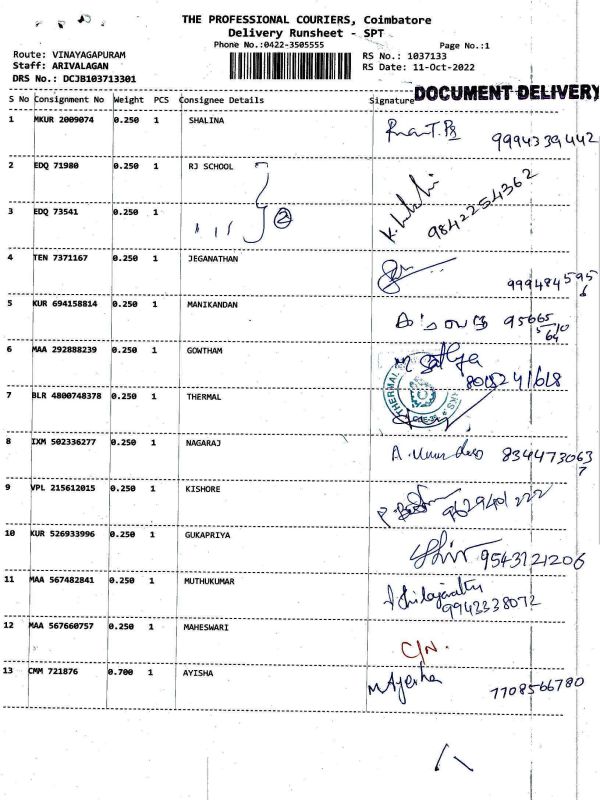 THE PROFESSIONAL COURIERS, Coimbatore
Delivery Runsheet - SPT
Phone No.:0422-3505555
Page No.:1
Route: VINAYAGAPURAM
RS No.: 1037133
Staff: ARIVALAGAN
RS Date: 11-Oct-2022
DRS No.: DCJB103713301
DOCUMENT DELIVERY
S No Consignment No Weight PCS Consignee Details Signature
1 MKUR 2009074 0.250 1 SHALINA
9994339442
2 EDQ 71980 0.250 1 RJ SCHOOL
9842254362
3 EDQ 73541 0.250 1
2
4 TEN 7371167 0.250 1 JEGANATHAN
5 KUR 694158814 0.250 1 MANIKANDAN
6 MAA 292888239 0.250 1 GOWTHAM
M Sathya
7 BLR 4800748378 0.250 1 THERMAL
THERMAL
8 IXM 502336277 0.250 1 NAGARAJ
8344730637
9 VPL 215612015 0.250 1 KISHORE
10 KUR 526933996 0.250 1 GUKAPRIYA
9543121206
11 MAA 567482841 0.250 1 MUTHUKUMAR
9943338072
12 MAA 567660757 0.250 1 MAHESWARI
C/N.
13 CMM 721876 0.700 1 AYISHA
M Ayesha 7708566780